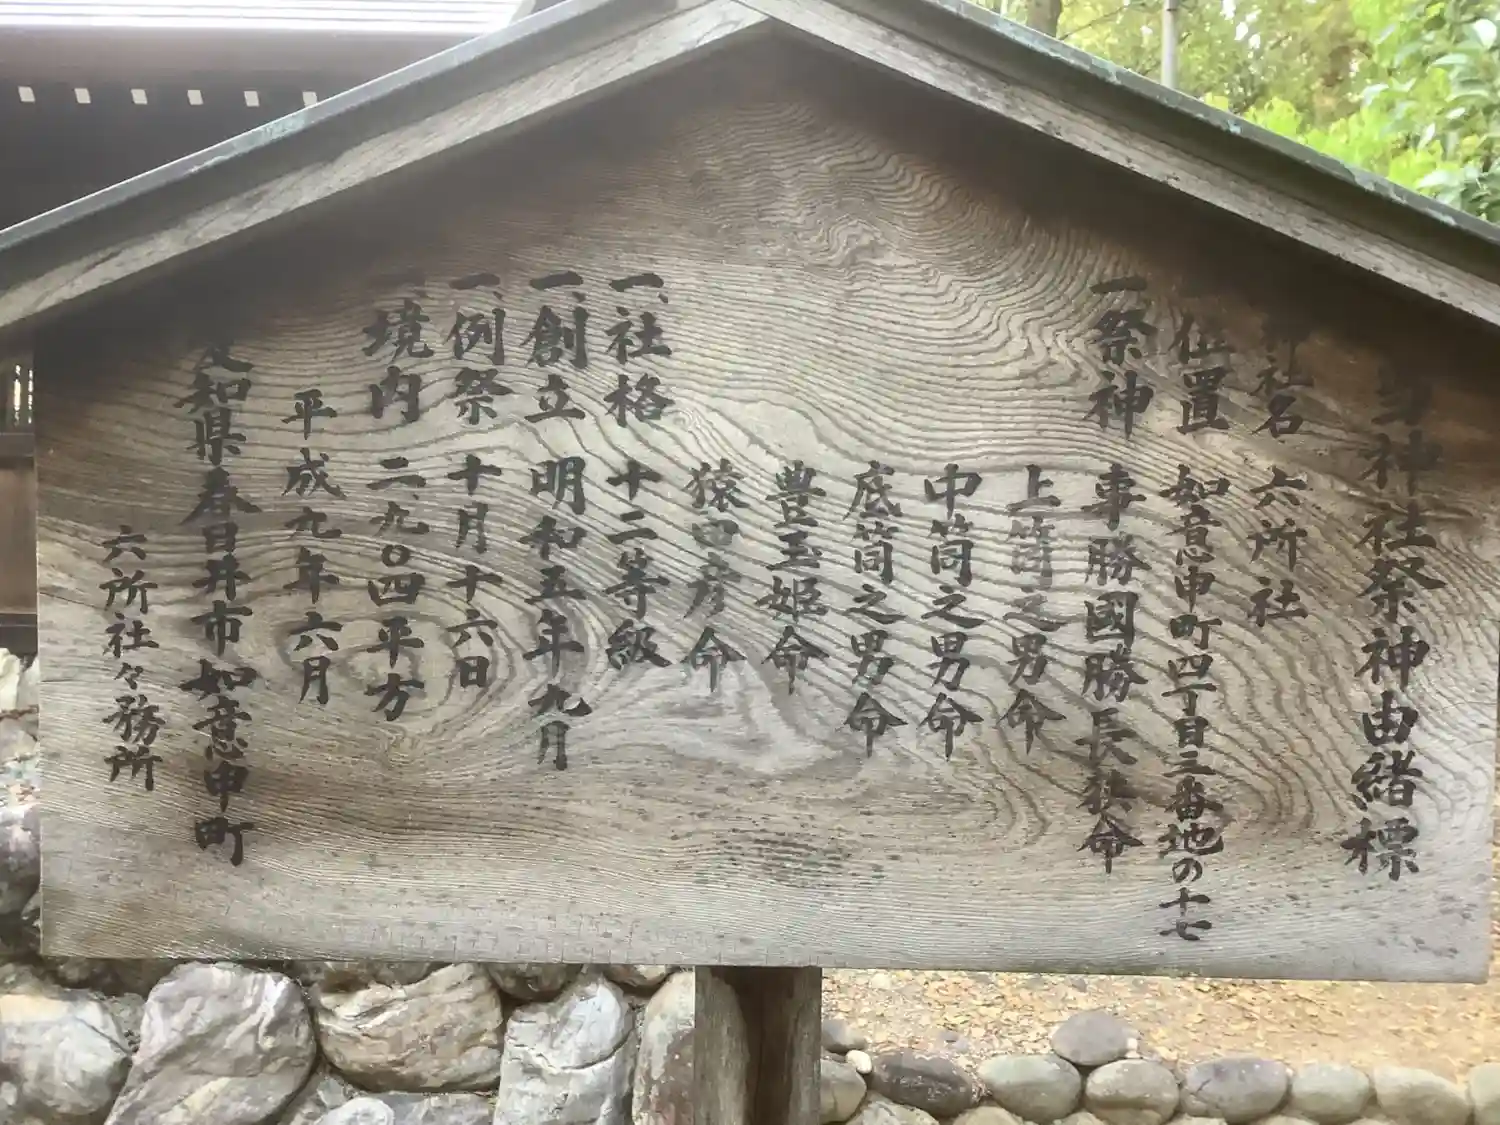 当神社祭神由緒標
神社名 六所社
位置 如意申町四丁目三番地の十七
一祭神 事勝國勝長狭命
上筒之男命
中筒之男命
底筒之男命
豊玉姫命
猿田彦命
一、社格 十二等級
一、創立 明和五年九月
一、例祭 十月十六日
一、境内 二、九〇四平方
平成九年六月
愛知県春日井市如意申町
六所社々務所